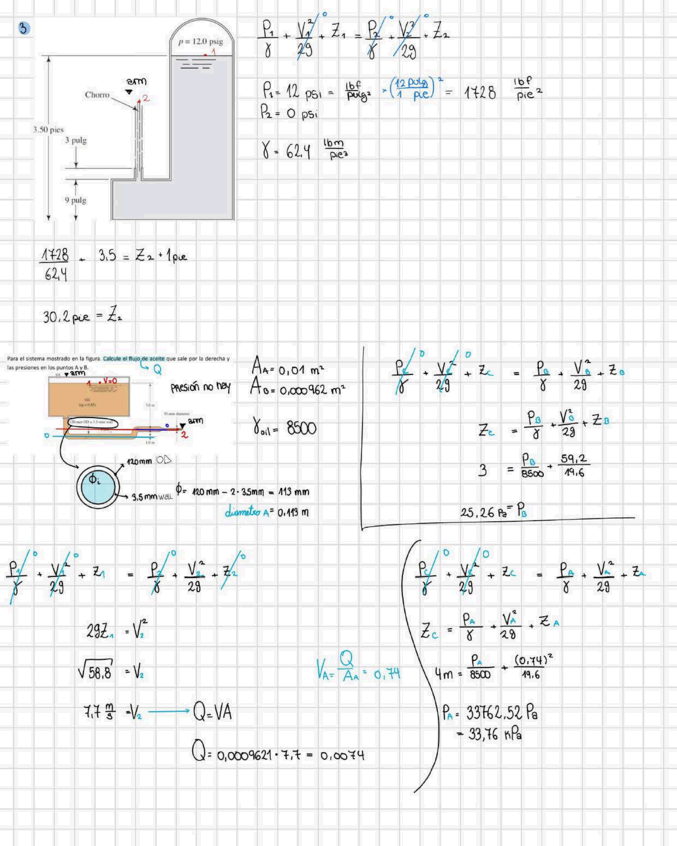 3
p = 12.0 psig
1
atm
Chorro
2
3.50 pies
3 pulg
9 pulg
P₁/γ + V₁²/2g + Z₁ = P₂/γ + V₂²/2g + Z₂
P₁ = 12 psi = lbf/pulg² · (12 pulg/1 pie)² = 1728 lbf/pie²
P₂ = 0 psi
γ = 62,4 lbm/pie³
1728/62,4 + 3,5 = Z₂ + 1 pie
30,2 pie = Z₂
Para el sistema mostrado en la figura. Calcule el flujo de aceite que sale por la derecha y
las presiones en los puntos A y B.
Q
atm
1 V=0
presión no hay
atm
0
2
A_A = 0,01 m²
A_B = 0,000962 m²
γoil = 8500
120mm OD
ϕi
3.5mm wall
ϕ = 120 mm - 2 · 3.5mm = 113 mm
diametro A = 0,113 m
P_C/γ + V_C²/2g + Z_C = P_B/γ + V_B²/2g + Z_B
Z_C = P_B/γ + V_B²/2g + Z_B
3 = P_B/8500 + 59,2/19,6
25,26 Pa = P_B
P₁/γ + V₁²/2g + Z₁ = P₂/γ + V₂²/2g + Z₂
2gZ₁ = V₂²
√58,8 = V₂
7,7 m/s = V₂ → Q = VA
Q = 0,0009621 · 7,7 = 0,0074
V_A = Q/A_A = 0,74
P_C/γ + V_C²/2g + Z_C = P_A/γ + V_A²/2g + Z_A
Z_C = P_A/γ + V_A²/2g + Z_A
4m = P_A/8500 + (0,74)²/19,6
P_A = 33762,52 Pa
= 33,76 kPa